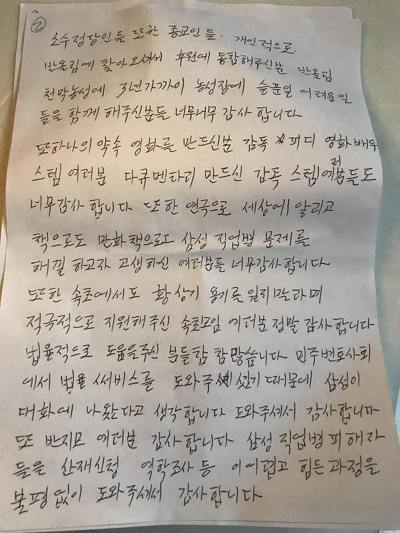 ②
소수정당인들 또한 종교인들. 개인적으로
반올림에 찾아오셔서 후원에 동참해주신분 반올림
천막농성에 3년가까이 농성장에 슬픔일 어려움일
들을 함께 해주신분들 너무너무 감사 합니다
또하나의 약속 영화를 만드신분 감독 피디 영화배우
스텝 여러분 다큐멘타리 만드신 감독 스텝여러분들도
너무감사 합니다 또한 연극으로 세상에 알리고
책으로도 만화책으로도 삼성 직업병 문제를
해결 하고자 고생하신 여러분들 너무감사합니다.
또한 속초에서도 황상기 용기를 잃지말라며
적극적으로 지원해주신 속초모임 여러분 정말 감사합니다
법률적으로 도움을주신 분들 참 많습니다 민주변호사회
에서 법률 써비스를 도와주셨기 때문에 삼성이
대화에 나왔다고 생각합니다 도와주셔서 감사합니다
또 반지모 여러분 감사합니다 삼성 직업병 피해자
들을 산재신청 역학조사 등 어렵고 힘든 과정을
불평없이 도와주셔서 감사합니다.